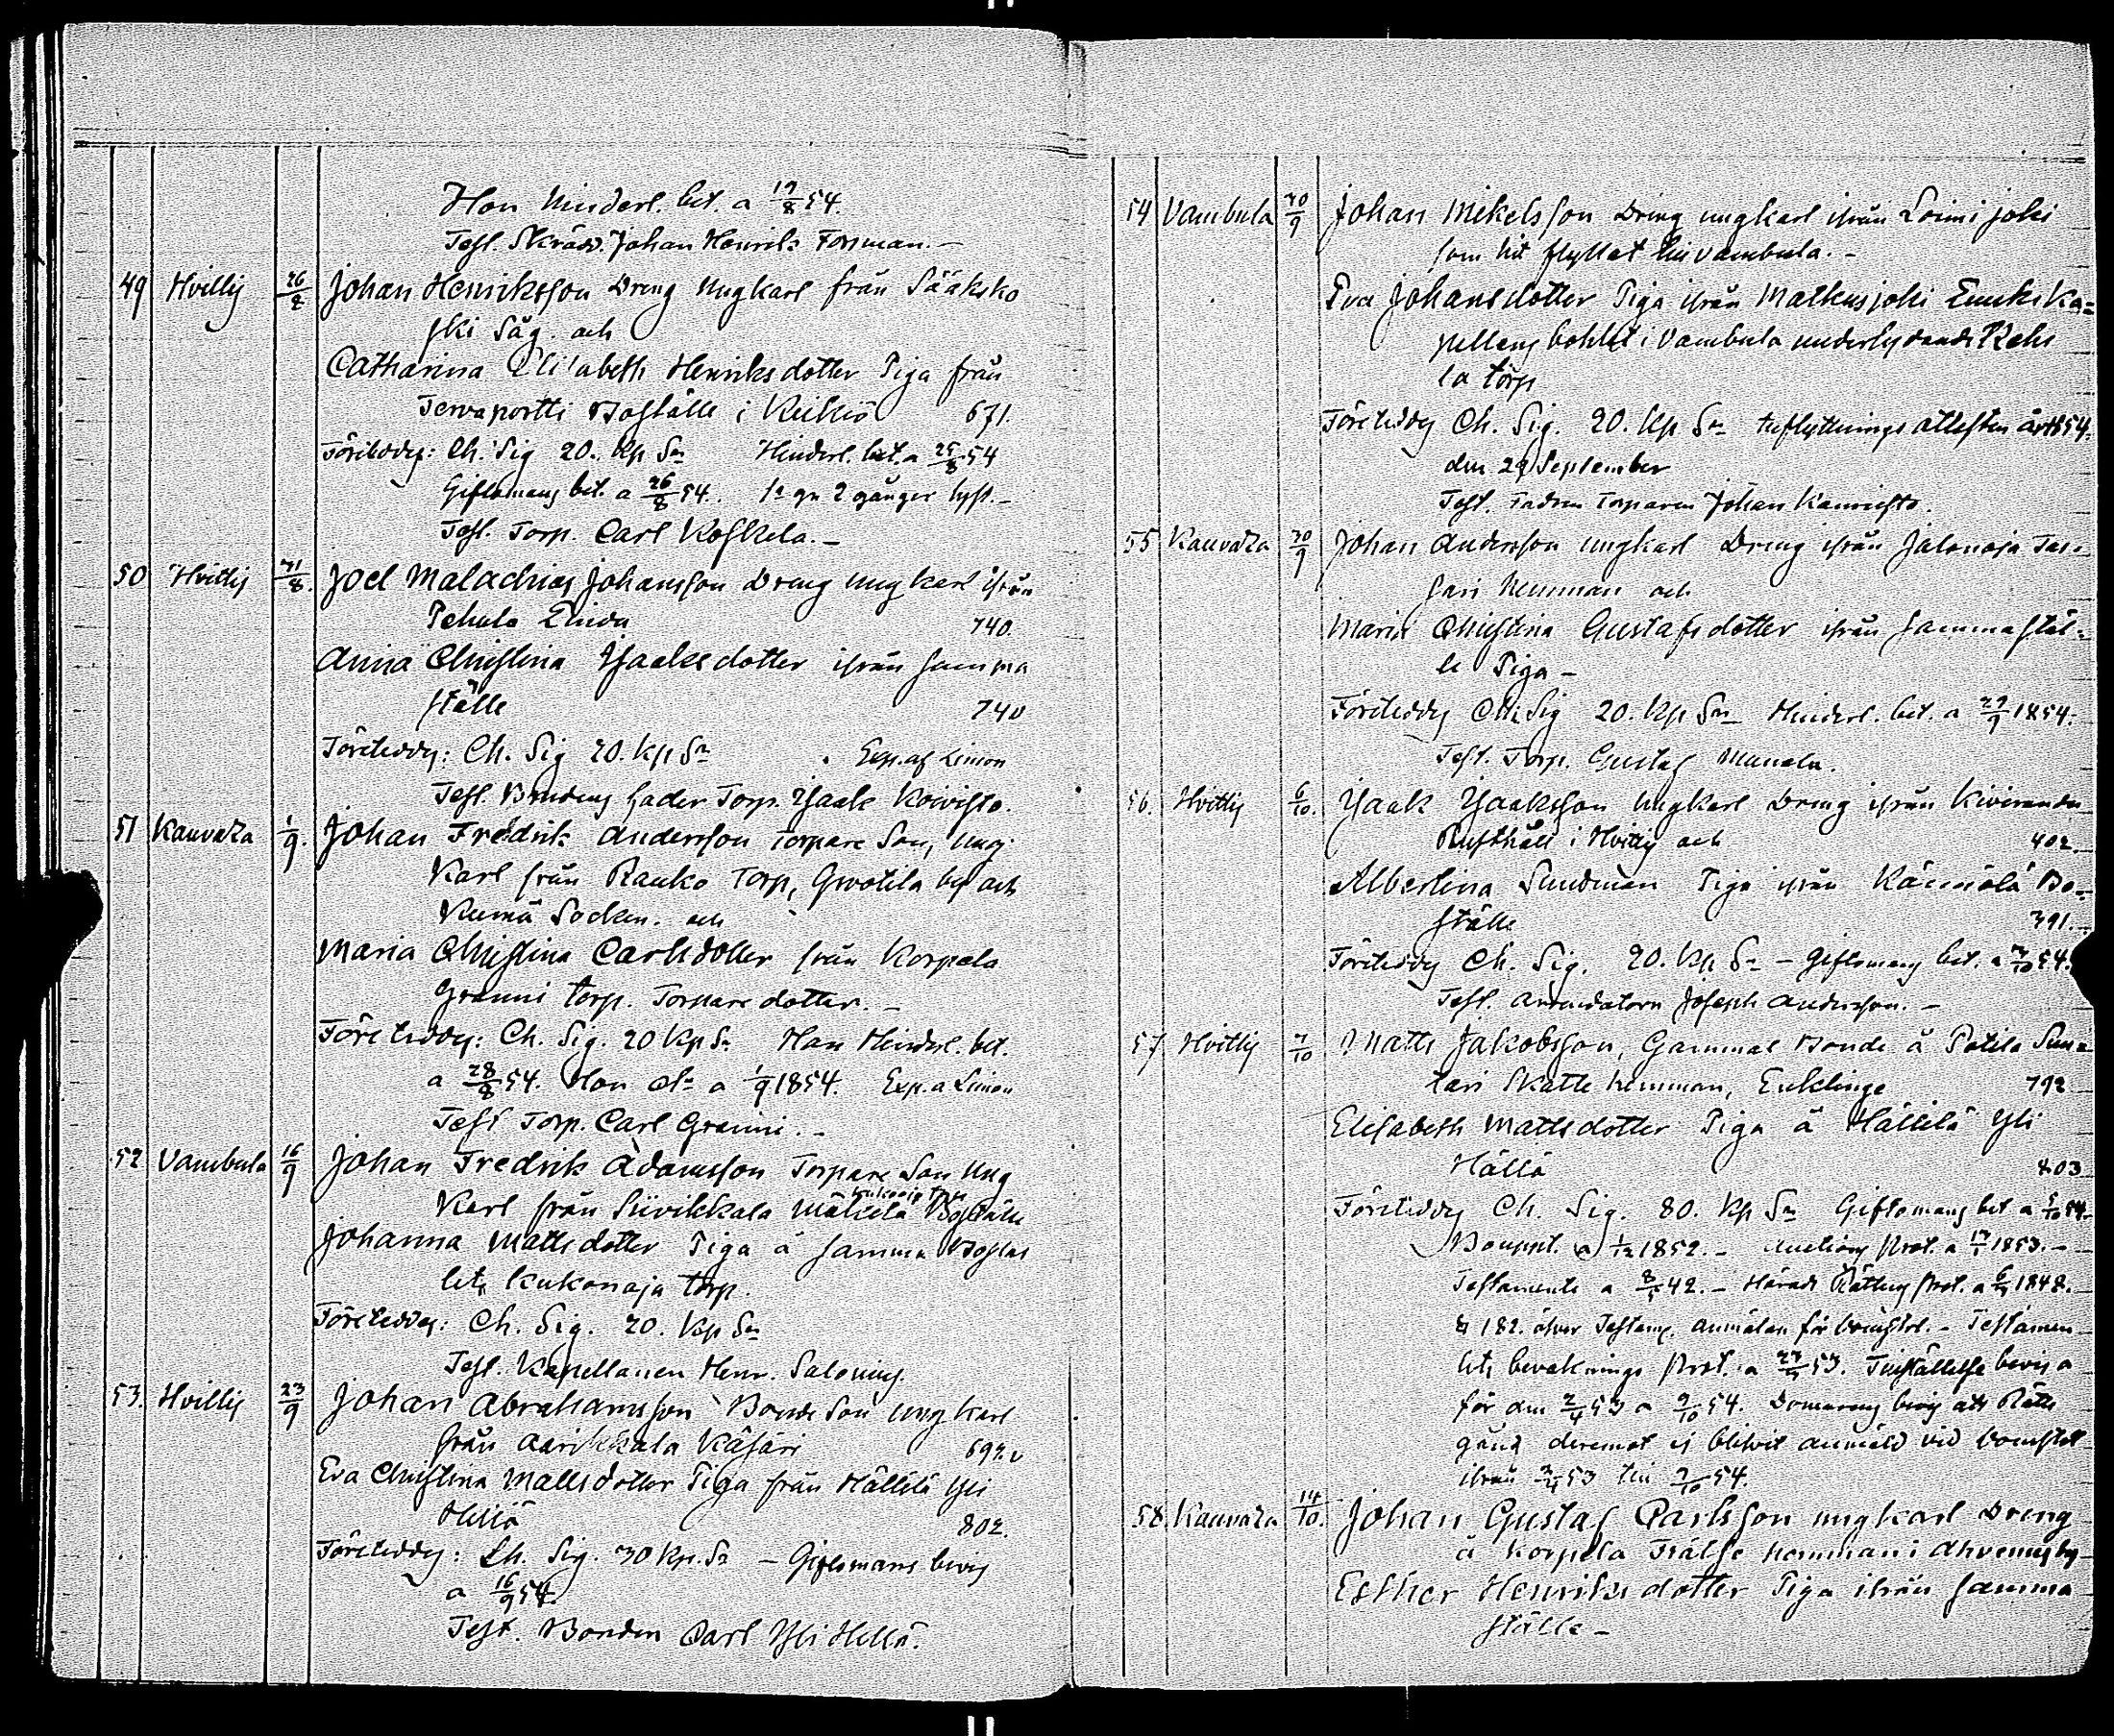 Hon Hinderl. bet. a 19/8 54.
Test. Skrädd. Johan Henrik Forsman. —
49 Hvittis 26/8 Johan Henriksson Dreng Ungkarl från Sääksko
ski Såg. och
Catharina Elisabeth Henriksdotter Piga från
Tervaportti Boställe i Keikiö 671.
Företeddes: Ch. Sig 20. Kp Sr Hinderl. bet. a 25/8 54
Giftomans bet. a 26/8 54. 2 gånger lyst. —
Test. Torp. Carl Koskela. —
50 Hvittis 31/8. Joel Malachias Johansson Dreng ungkarl ifrån
740.
Anna Christina Isaaksdotter ifrån samma
ställe 740
Företeddes: Ch. Sig 20. Kp Sr
Test. Brudens fader Torp. Isaak Koivisto.
51 Kauvatza 1/9. Johan Fredrik Andersson Torpare Son, Ung
Karl från Rauko Torp, by och
Kumå Socken. och
Maria Christina Carlsdotter från Korpela
Granni torp. Torpare dotter. —
Företeddes: Ch. Sig. 20 Kp Sr Han Hinderl. bet.
a 28/8 54. Hon do a 1/9 1854.
Test Torp. Carl Granni. —
52 Vambula 16/9 Johan Fredrik Adamsson Torpare Son Ung
Karl från Siivikkala Mäkelä Boställe
Johanna Mattsdotter Piga å samma Bostäl
lets Kukonaja torp.
Företeddes: Ch. Sig. 20. Kp Sr
Test. Kapellanen Henr. Salonius.
53. Hvittis 23/9 Johan Abrahamsson Bonde Son ungkarl
från 692.
Eva Christina Mattsdotter Piga från Hällilä Yli
Hällä 802.
Företeddes: Ch. Sig. 30 Kp. Sr — Giftomans bevis
a 16/9 54.
Test. Bonden Carl Yli Hellä.
54 Vambula 30/9 Johan Mikelsson Dreng ungkarl ifrån Loimijoki
som hit flyttat till Vambula. —
Eva Johansdotter Piga ifrån Ka=
pellans bohlet i Vambula underlydande
la torp
Företeddes Ch. Sig. 20. Kp Sr Inflyttnings attesten 54.
den 29 September
Test. Fadren Torparen Johan
55 Kauvatza 30/9 Johan Andersson ungkarl Dreng ifrån
sari Hemman och
Maria Christina Gustafsdotter ifrån samma stäl=
le Piga —
Företeddes Ch. Sig 20. Kp Sr Hinderl. bet. a 29/9 1854.
Test. Torp. Gustaf
56. Hvittis 6/10. Isaak Isaaksson Ungkarl Dreng ifrån Kiviranda
Rusthåll i Hvittis och 402.
Albertina Sundman Piga ifrån Bo=
ställe 391.
Företeddes Ch. Sig. 20. Kp Sr — Giftomans bet. a 3/10 54.
Test. Arrendatorn Joseph Andersson. —
57 Hvittis 7/10 Matts Jakobsson, Gammal Bonde å
tari Skatte hemman, Enklinge 792
Elisabeth Mattsdotter Piga å Hällilä Yli
Hällä 803
Företeddes Ch. Sig. 80. Kp Sr Giftomans bet a 5/10 54.
Bouppt. a 1852. — Auctions Prot. a 1853. —
Testamente a 42. — Härads Rättens Prot. a 1848.
§ 182. öfver Testam. anmälan för Domstol. — Testamen
tets bevaknings Prot. a 53. bevis a
för den 2/4 53 a 2/10 54. Domarens bevis att Rätte
gång deremot ej blifvit anmäld vid Domstol
ifrån 53 till 2/10 54.
58. Kauvatza 14/10. Johan Gustaf Carlsson ungkarl Dreng
å Korpela Frälse hemman i
Esther Henriksdotter Piga ifrån samma
ställe —